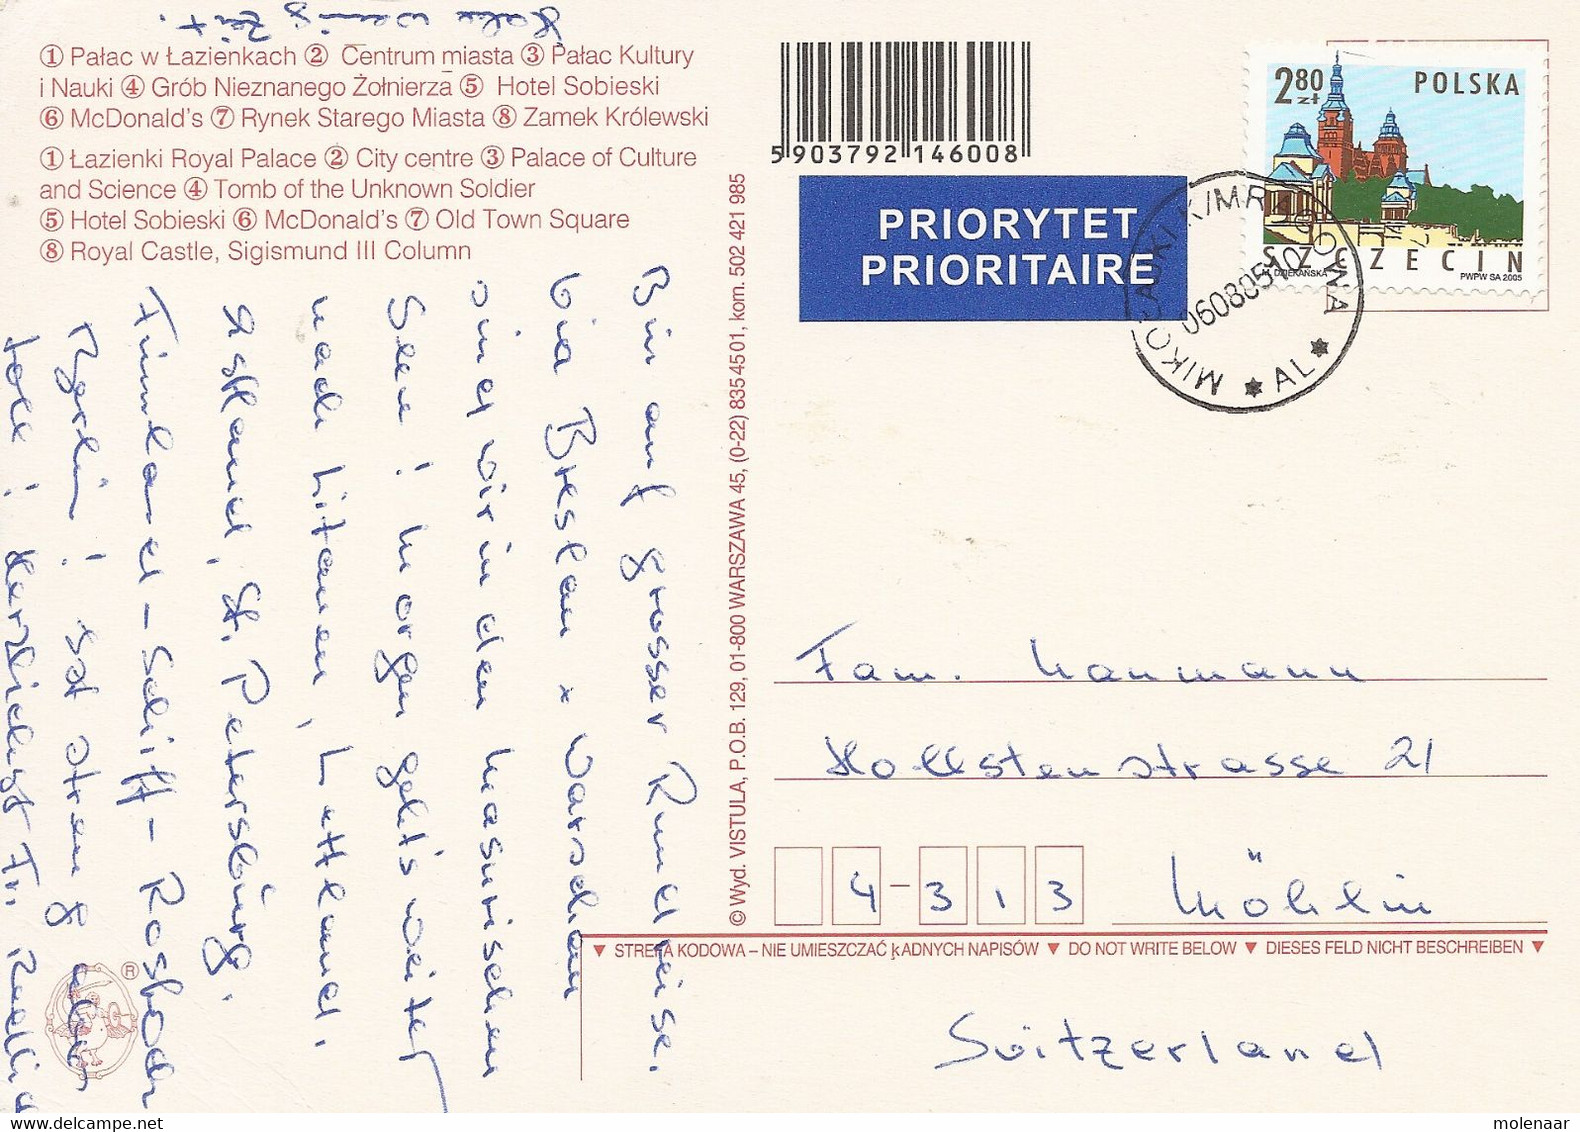 Habe wenig Zeit.
① Pałac w Łazienkach ② Centrum miasta ③ Pałac Kultury
i Nauki ④ Grób Nieznanego Żołnierza ⑤ Hotel Sobieski
⑥ McDonald's ⑦ Rynek Starego Miasta ⑧ Zamek Królewski
① Łazienki Royal Palace ② City centre ③ Palace of Culture
and Science ④ Tomb of the Unknown Soldier
⑤ Hotel Sobieski ⑥ McDonald's ⑦ Old Town Square
⑧ Royal Castle, Sigismund III Column
Bin auf grosser Rundreise.
Via Breslau x Warschau
sind wir in den Masurischen
Seen! Morgen geht's weiter
nach Litauen, Lettland,
Estland, St. Petersburg.
Finnland - Schiff - Rostock
Berlin! Ist streng aber
toll! Herzlichst Fr.
© Wyd. VISTULA, P.O.B. 129, 01-800 WARSZAWA 45, (0-22) 835 45 01, kom. 502 421 985
5 903792 146008
PRIORYTET
PRIORITAIRE
2 80 zł
POLSKA
SZCZECIN
M. DZIEKAŃSKA
PWPW SA 2005
MIKOŁAJKI K/MRĄGOWA
06080510
* AL *
Fam. Naumann
Hollstenstrasse 21
4-313 Möhlin
▼ STREFA KODOWA – NIE UMIESZCZAĆ ŻADNYCH NAPISÓW ▼ DO NOT WRITE BELOW ▼ DIESES FELD NICHT BESCHREIBEN ▼
Switzerland
®
molenaar